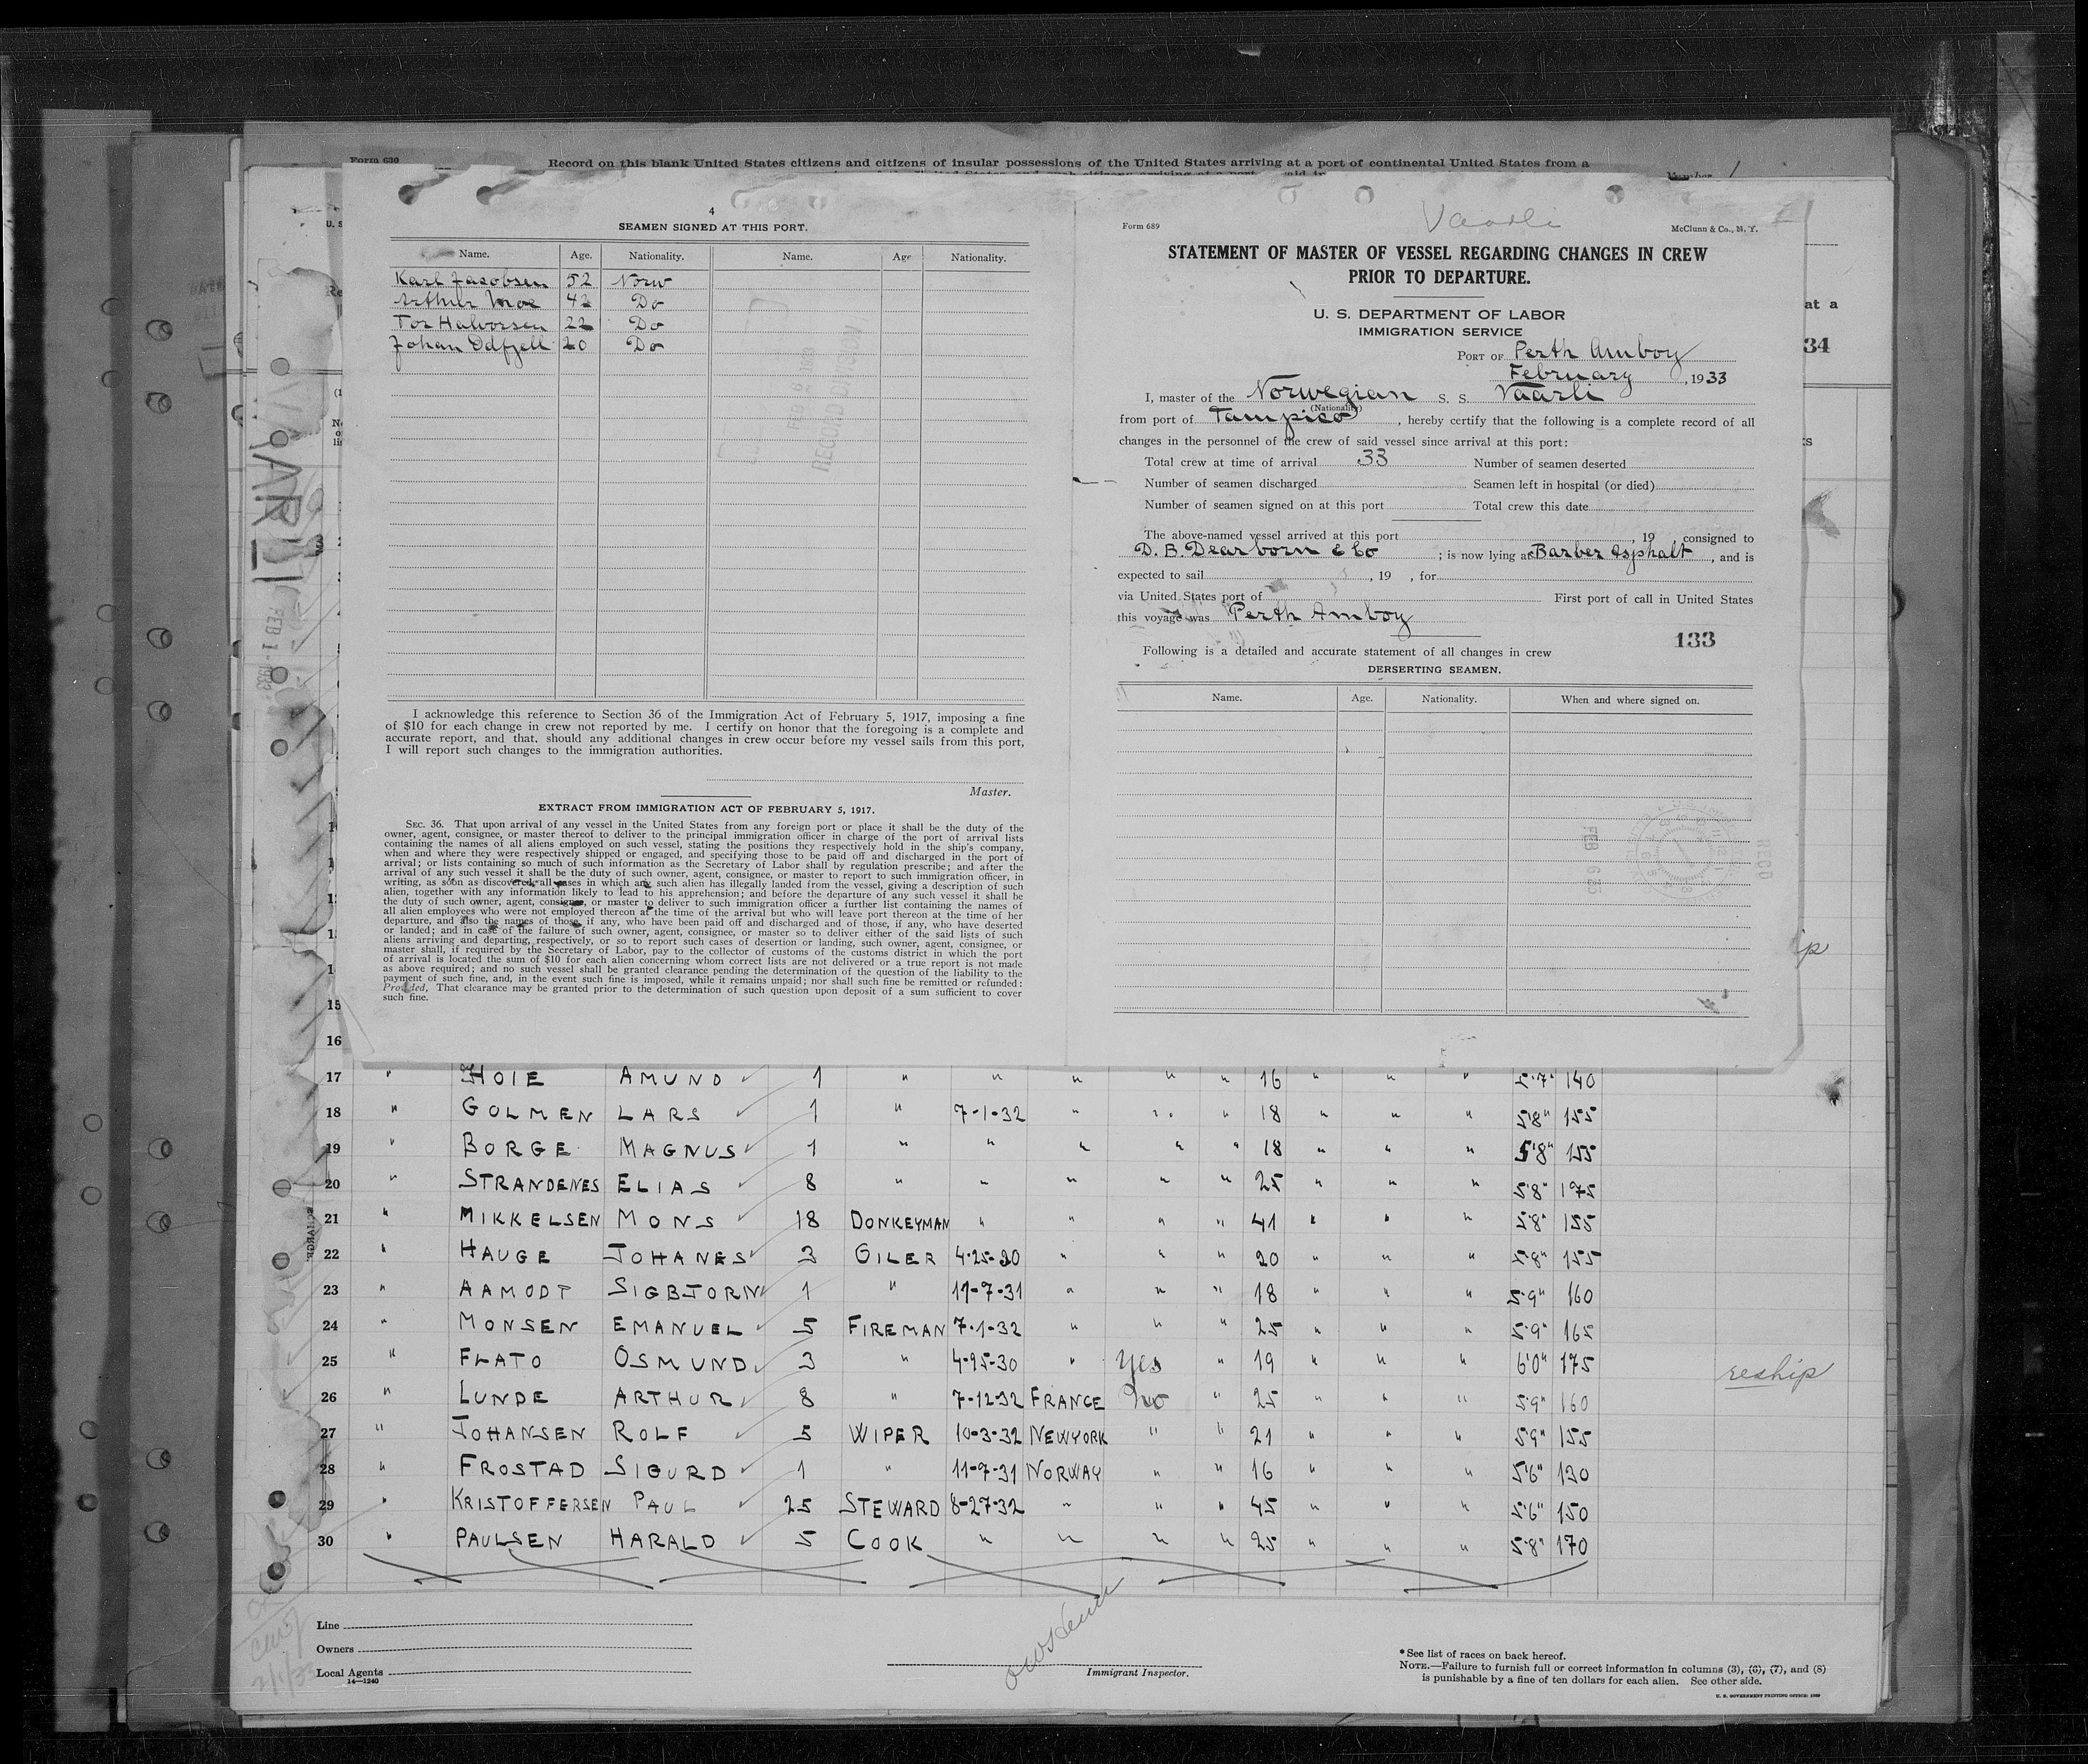 Form 630
Record on this blank United States citizens and citizens of insular possessions of the United States arriving at a port of continental United States from a
Number
4
SEAMEN SIGNED AT THIS PORT.
Name. Age. Nationality. Name. Age Nationality.
Karl Jacobsen 52 Norw
Arthur Moe 42 Do
Tor Halvorsen 22 Do
Johan Odfjell 20 Do
I acknowledge this reference to Section 36 of the Immigration Act of February 5, 1917, imposing a fine
of $10 for each change in crew not reported by me. I certify on honor that the foregoing is a complete and
accurate report, and that. should any additional changes in crew occur before my vessel sails from this port,
I will report such changes to the immigration authorities.
Master.
EXTRACT FROM IMMIGRATION ACT OF FEBRUARY 5, 1917.
SEC. 36. That upon arrival of any vessel in the United States from any foreign port or place it shall be the duty of the
owner, agent, consignee, or master thereof to deliver to the principal immigration officer in charge of the port of arrival lists
containing the names of all aliens employed on such vessel, stating the positions they respectively hold in the ship's company,
when and where they were respectively shipped or engaged, and specifying those to be paid off and discharged in the port of
arrival; or lists containing so much of such information as the Secretary of Labor shall by regulation prescribe; and after the
arrival of any such vessel it shall be the duty of such owner, agent, consignee, or master to report to such immigration officer, in
writing, as soon as discovered, all cases in which any such alien has illegally landed from the vessel, giving a description of such
alien, together with any information likely to lead to his apprehension; and before the departure of any such vessel it shall be
the duty of such owner, agent, consignee, or master to deliver to such immigration officer a further list containing the names of
all alien employees who were not employed thereon at the time of the arrival but who will leave port thereon at the time of her
departure, and also the names of those, if any, who have been paid off and discharged and of those, if any, who have deserted
or landed; and in case of the failure of such owner, agent, consignee, or master so to deliver either of the said lists of such
aliens arriving and departing, respectively, or so to report such cases of desertion or landing, such owner, agent, consignee, or
master shall, if required by the Secretary of Labor, pay to the collector of customs of the customs district in which the port
of arrival is located the sum of $10 for each alien concerning whom correct lists are not delivered or a true report is not made
as above required; and no such vessel shall be granted clearance pending the determination of the question of the liability to the
payment of such fine, and, in the event such fine is imposed, while it remains unpaid; nor shall such fine be remitted or refunded:
Provided, That clearance may be granted prior to the determination of such question upon deposit of a sum sufficient to cover
such fine.
Vaarli
Form 689 McClunn & Co., N. Y.
STATEMENT OF MASTER OF VESSEL REGARDING CHANGES IN CREW
PRIOR TO DEPARTURE.
U. S. DEPARTMENT OF LABOR
IMMIGRATION SERVICE
PORT OF Perth Amboy
February, 1933
I, master of the Norwegian S. S. Vaarli
(Nationality)
from port of Tampico, hereby certify that the following is a complete record of all
changes in the personnel of the crew of said vessel since arrival at this port:
Total crew at time of arrival 33 Number of seamen deserted
Number of seamen discharged Seamen left in hospital (or died)
Number of seamen signed on at this port Total crew this date
The above-named vessel arrived at this port , 19 consigned to
D. B. Dearborn & Co ; is now lying at Barber Asphalt, and is
expected to sail , 19 , for
via United States port of First port of call in United States
this voyage was Perth Amboy
133
Following is a detailed and accurate statement of all changes in crew
DERSERTING SEAMEN.
Name. Age. Nationality. When and where signed on.
FEB 6 33
RECORD DIVISION
at a
34
VAARLI
FEB 1 - 1933
15
16
17 " HOIE AMUND ✓ 1 " " " " " 16 " " " 5'7" 140
18 " GOLMEN LARS ✓ 1 " 7-1-32 " " " 18 " " " 5'8" 155
19 " BORGE MAGNUS ✓ 1 " " " " " 18 " " " 5'8" 155
20 " STRANDENES ELIAS ✓ 8 " " " " " 25 " " " 5'8" 175
21 " MIKKELSEN MONS ✓ 18 DONKEYMAN " " " " 41 " " " 5'8" 155
22 " HAUGE JOHANES ✓ 3 OILER 4-25-30 " " " 20 " " " 5'8" 155
23 " AAMODT SIGBJORN ✓ 1 " 11-7-31 " " " 18 " " " 5'9" 160
24 " MONSEN EMANUEL ✓ 5 FIREMAN 7-1-32 " " " 25 " " " 5'9" 165
25 " FLATO OSMUND ✓ 3 " 4-25-30 " Yes " 19 " " " 6'0" 175 reship
26 " LUNDE ARTHUR ✓ 8 " 7-12-32 FRANCE No " 25 " " " 5'9" 160
27 " JOHANSEN ROLF ✓ 5 WIPER 10-3-32 NEWYORK " " 21 " " " 5'9" 155
28 " FROSTAD SIGURD ✓ 1 " 11-7-31 NORWAY " " 16 " " " 5'6" 130
29 " KRISTOFFERSEN PAUL ✓ 25 STEWARD 8-27-32 " " " 45 " " " 5'6" 150
30 " PAULSEN HARALD ✓ 5 COOK " " " " 25 " " " 5'8" 170
Line
Owners
Local Agents
14—1240
Immigrant Inspector.
* See list of races on back hereof.
NOTE.—Failure to furnish full or correct information in columns (3), (6), (7), and (8)
is punishable by a fine of ten dollars for each alien. See other side.
U. S. GOVERNMENT PRINTING OFFICE: 1929